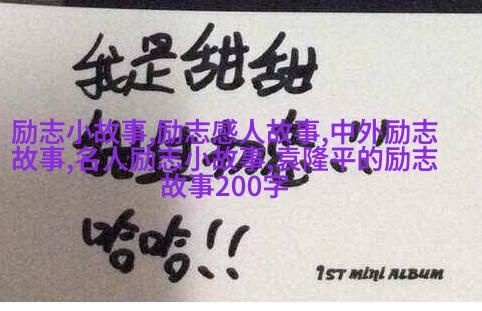 我是甜甜
励志小故事,励志感人故事,中外励志
故事,名人励志小故事,袁隆平的励志
故事200字
哈哈!!
1ST MINI ALBUM